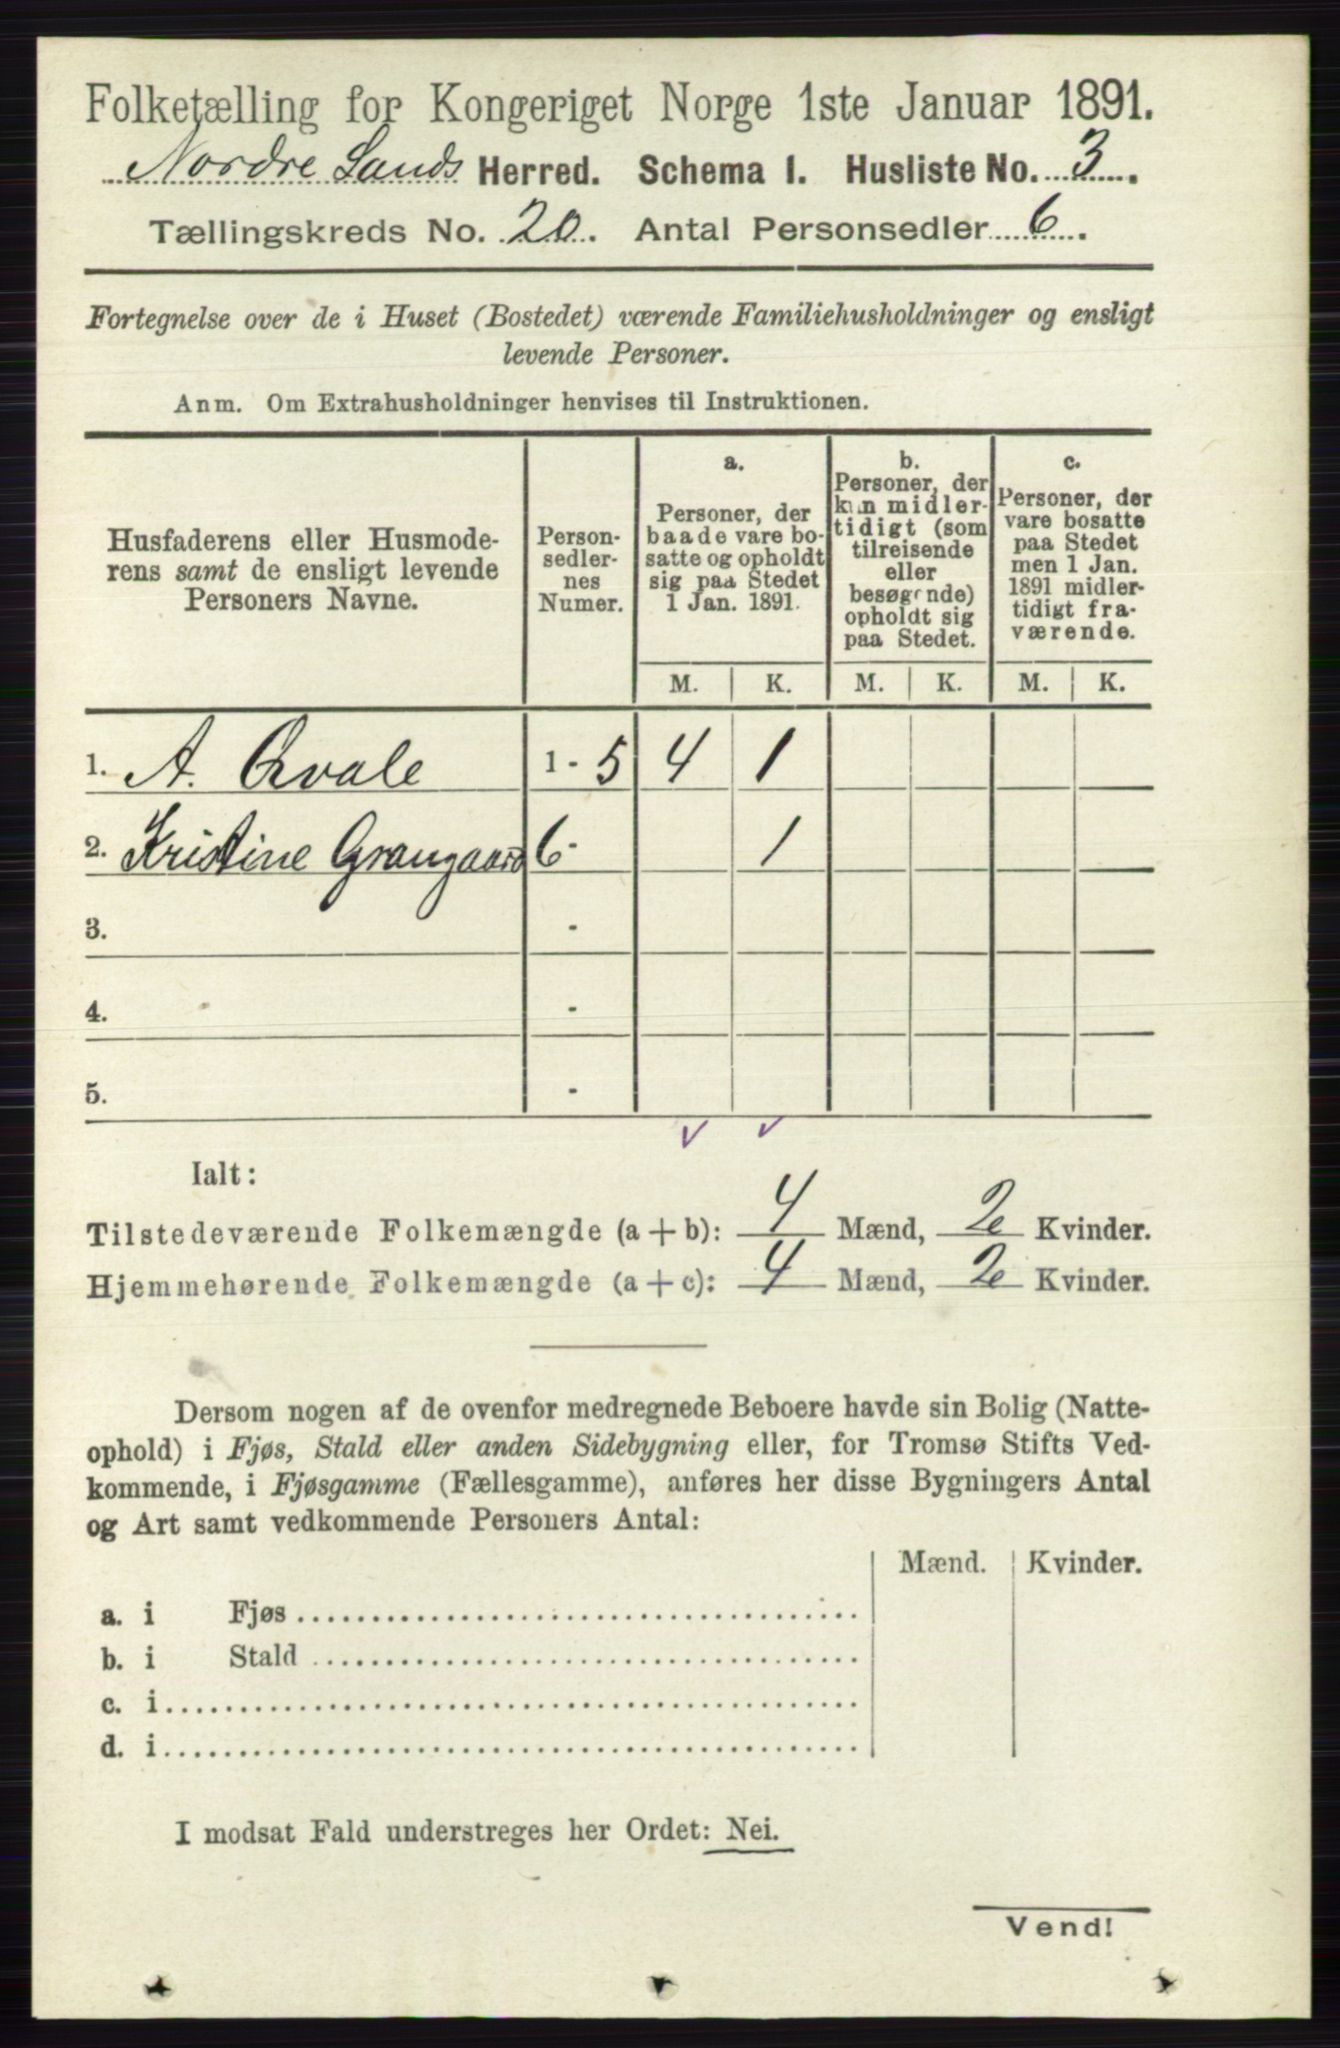 Folketælling for Kongeriget Norge 1ste Januar 1891.
Nordre Lands Herred. Schema 1. Husliste No. 3.
Tællingskreds No. 20. Antal Personsedler 6.
Fortegnelse over de i Huset (Bostedet) værende Familiehusholdninger og ensligt
levende Personer.
Anm. Om Extrahusholdninger henvises til Instruktionen.
Husfaderens eller Husmode-
rens samt de ensligt levende
Personers Navne.
Person-
sedler-
nes
Numer.
a.
Personer, der
baade vare bo-
satte og opholdt
sig paa Stedet
1 Jan. 1891.
b.
Personer, der
kun midler-
tidigt (som
tilreisende
eller
besøgende)
opholdt sig
paa Stedet.
c.
Personer, der
vare bosatte
paa Stedet
men 1 Jan.
1891 midler-
tidigt fra-
værende.
M. K. M. K. M. K.
1. A. Qvale 1 - 5 4 1
2. Kristine Grangaard 6 - 1
3. -
4. -
5. -
Ialt:
Tilstedeværende Folkemængde (a + b): 4 Mænd, 2 Kvinder.
Hjemmehørende Folkemængde (a + c): 4 Mænd, 2 Kvinder.
Dersom nogen af de ovenfor medregnede Beboere havde sin Bolig (Natte-
ophold) i Fjøs, Stald eller anden Sidebygning eller, for Tromsø Stifts Ved-
kommende, i Fjøsgamme (Fællesgamme), anføres her disse Bygningers Antal
og Art samt vedkommende Personers Antal:
Mænd. Kvinder.
a. i Fjøs
b. i Stald
c. i
d. i
I modsat Fald understreges her Ordet: Nei.
Vend!